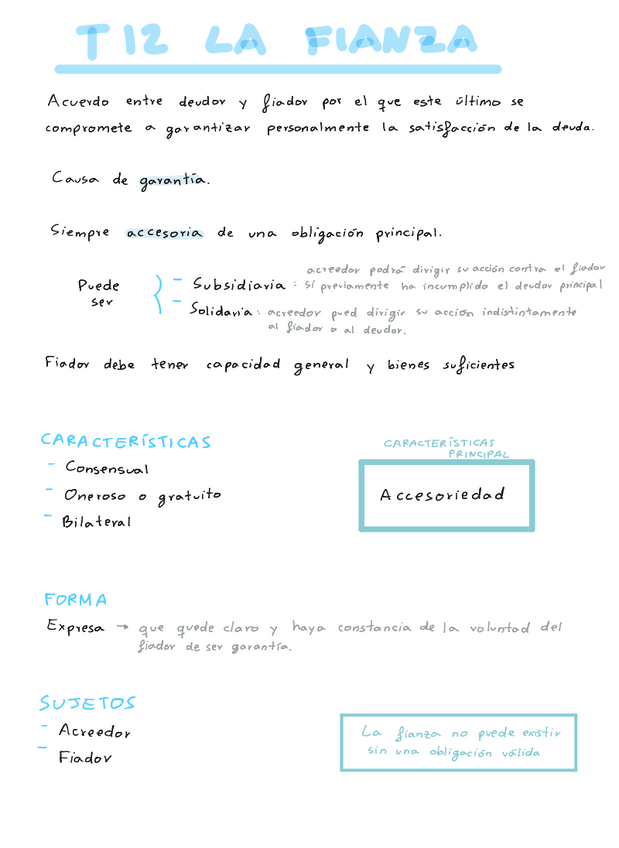 T12 LA FIANZA
Acuerdo entre deudor y fiador por el que este último se
compromete a garantizar personalmente la satisfacción de la deuda.
Causa de garantía.
Siempre accesoria de una obligación principal.
Puede
ser
- Subsidiaria : acreedor podrá dirigir su acción contra el fiador
si previamente ha incumplido el deudor principal
- Solidaria : acreedor pued dirigir su acción indistintamente
al fiador o al deudor.
Fiador debe tener capacidad general y bienes suficientes
CARACTERÍSTICAS
- Consensual
- Oneroso o gratuito
- Bilateral
CARACTERÍSTICAS
PRINCIPAL
Accesoriedad
FORMA
Expresa → que quede claro y haya constancia de la voluntad del
fiador de ser garantía.
SUJETOS
- Acreedor
- Fiador
La fianza no puede existir
sin una obligación válida